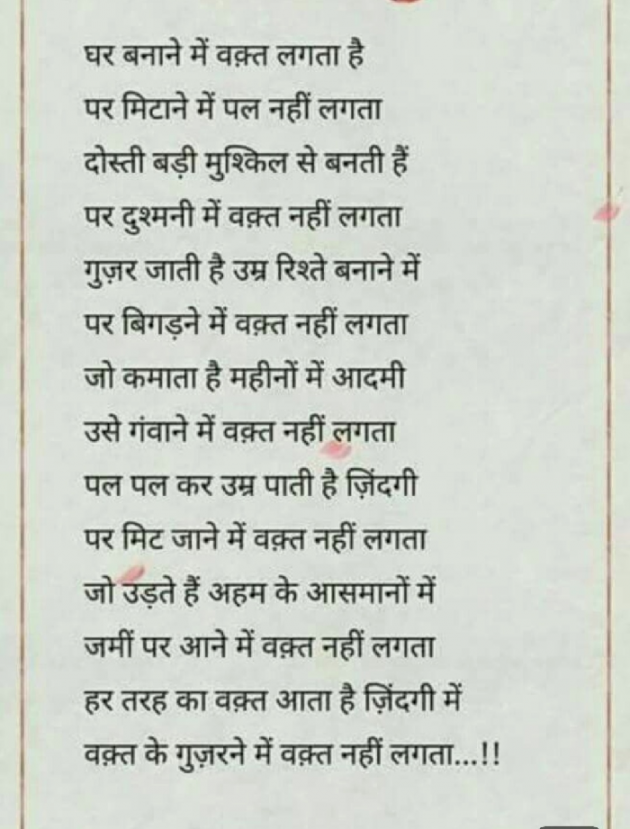 घर बनाने में वक़्त लगता है
पर मिटाने में पल नहीं लगता
दोस्ती बड़ी मुश्किल से बनती हैं
पर दुश्मनी में वक़्त नहीं लगता
गुज़र जाती है उम्र रिश्ते बनाने में
पर बिगड़ने में वक़्त नहीं लगता
जो कमाता है महीनों में आदमी
उसे गंवाने में वक़्त नहीं लगता
पल पल कर उम्र पाती है ज़िंदगी
पर मिट जाने में वक़्त नहीं लगता
जो उड़ते हैं अहम के आसमानों में
जमीं पर आने में वक़्त नहीं लगता
हर तरह का वक़्त आता है ज़िंदगी में
वक़्त के गुज़रने में वक़्त नहीं लगता...!!